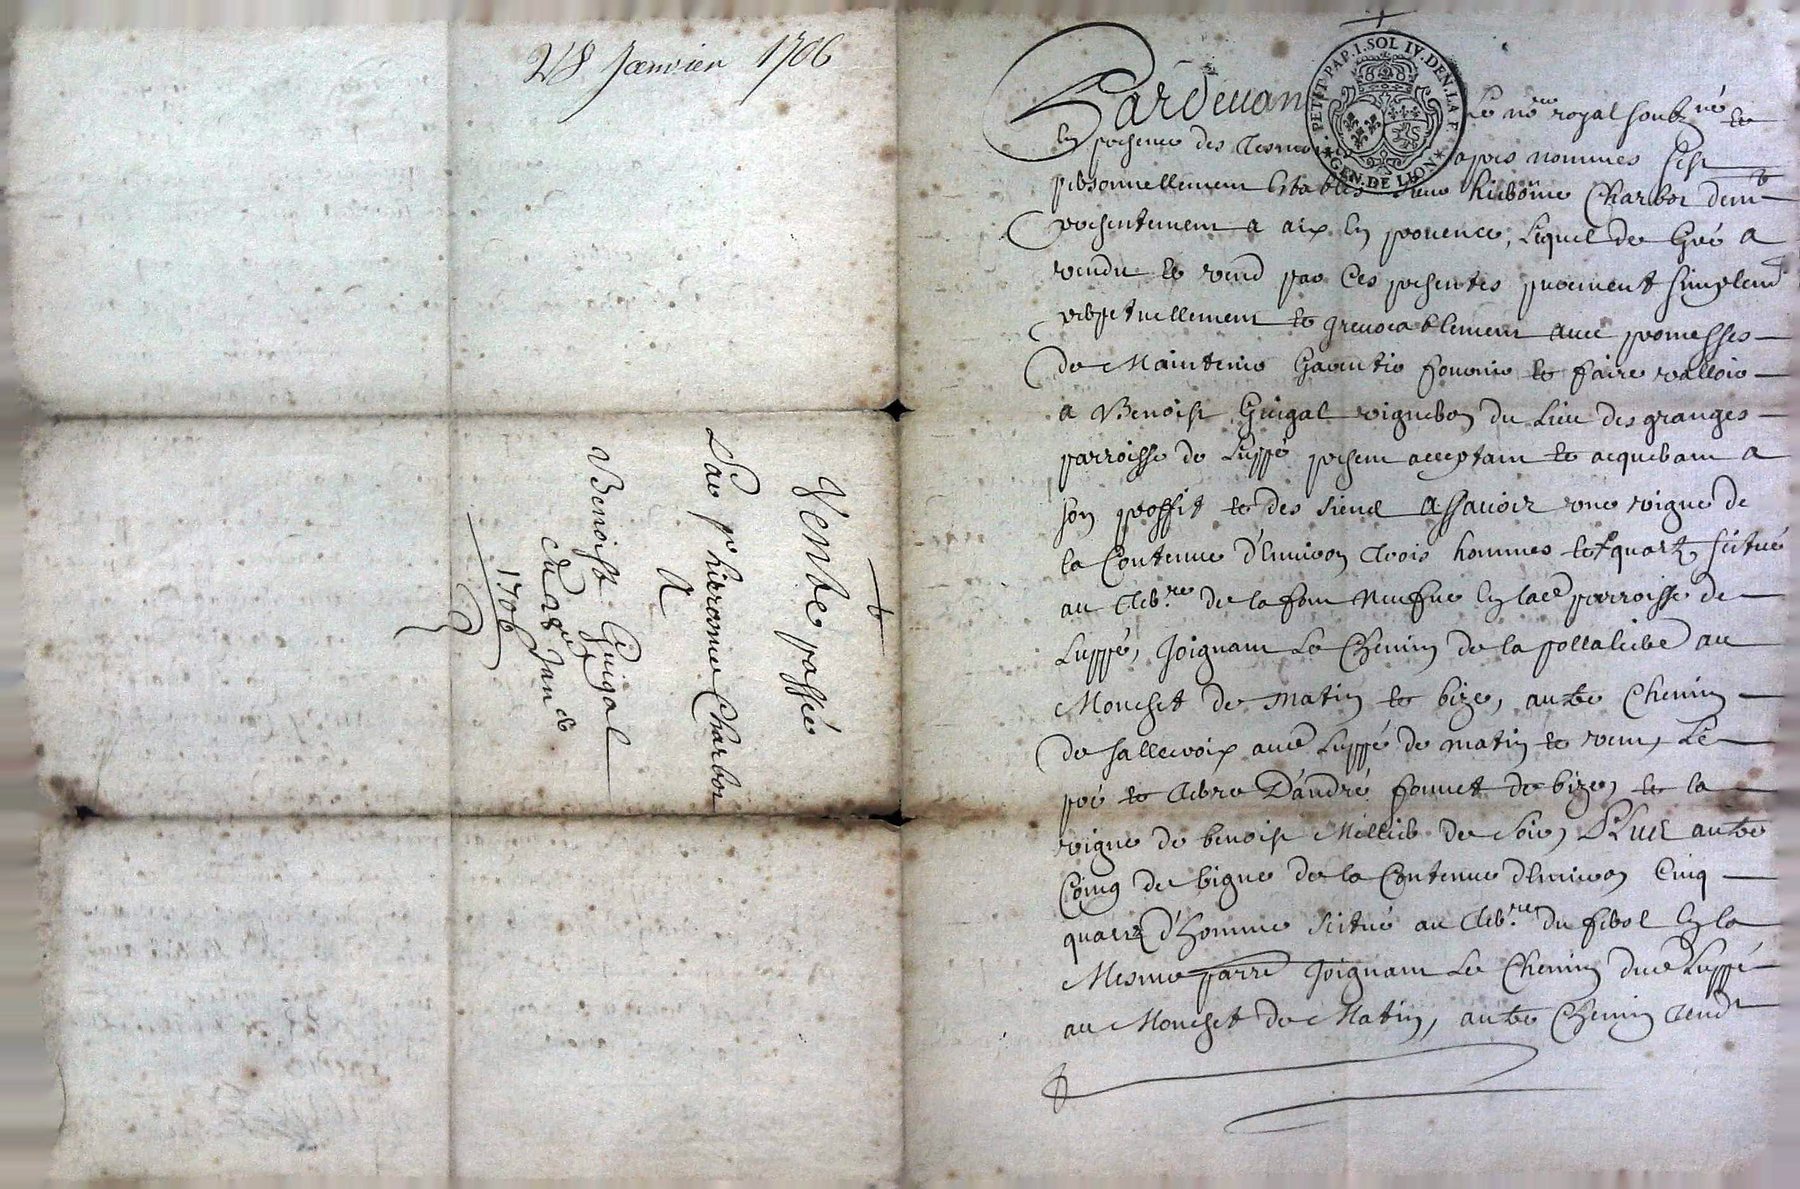 28 Janvier 1706
Vente passée
Par sr hierosme Charbot
A
Benoist Guigal
du 28e Jan
1706
PETIT PAP. I. SOL IV. DEN. LA F.
GEN. DE LION
Pardevant Le nre royal soubzné et
en presence des tesmoins apres nommes sest
personnellement estably sieur hierosme Charbot demt
presentement a aix en provence, Lequel de Gré a
vendu et vend par Ces presentes purement simplemt
perpetuellement et Irevocablement avec promesses
de Maintenir Garentir fournir et faire valloir
a Benoist Guigal vigneron du Lieu des granges
parroisse de Luppé present acceptant et acquerant a
son proffit et des siens Assavoir une vigne de
la Contenue d'Environ trois hommes et quart, scitué
au terre de la font Neufve en lad parroisse de
Luppé, Joignant Le Chemin de la au
Moncset de matin et bize, autre Chemin
de sallecroix aud Luppé de matin et vent, Le
pré et terre D'andré fonnet de bize, et la
vigne de benoist Mellier de soir, Plus autre
Coing de vigne de la Contenue d'Environ Cinq
quartz d'homme scitué au terre du en la
Mesme parre Joignant Le Chemin dud Luppé
au Moncset de Matin, autre Chemin tendt